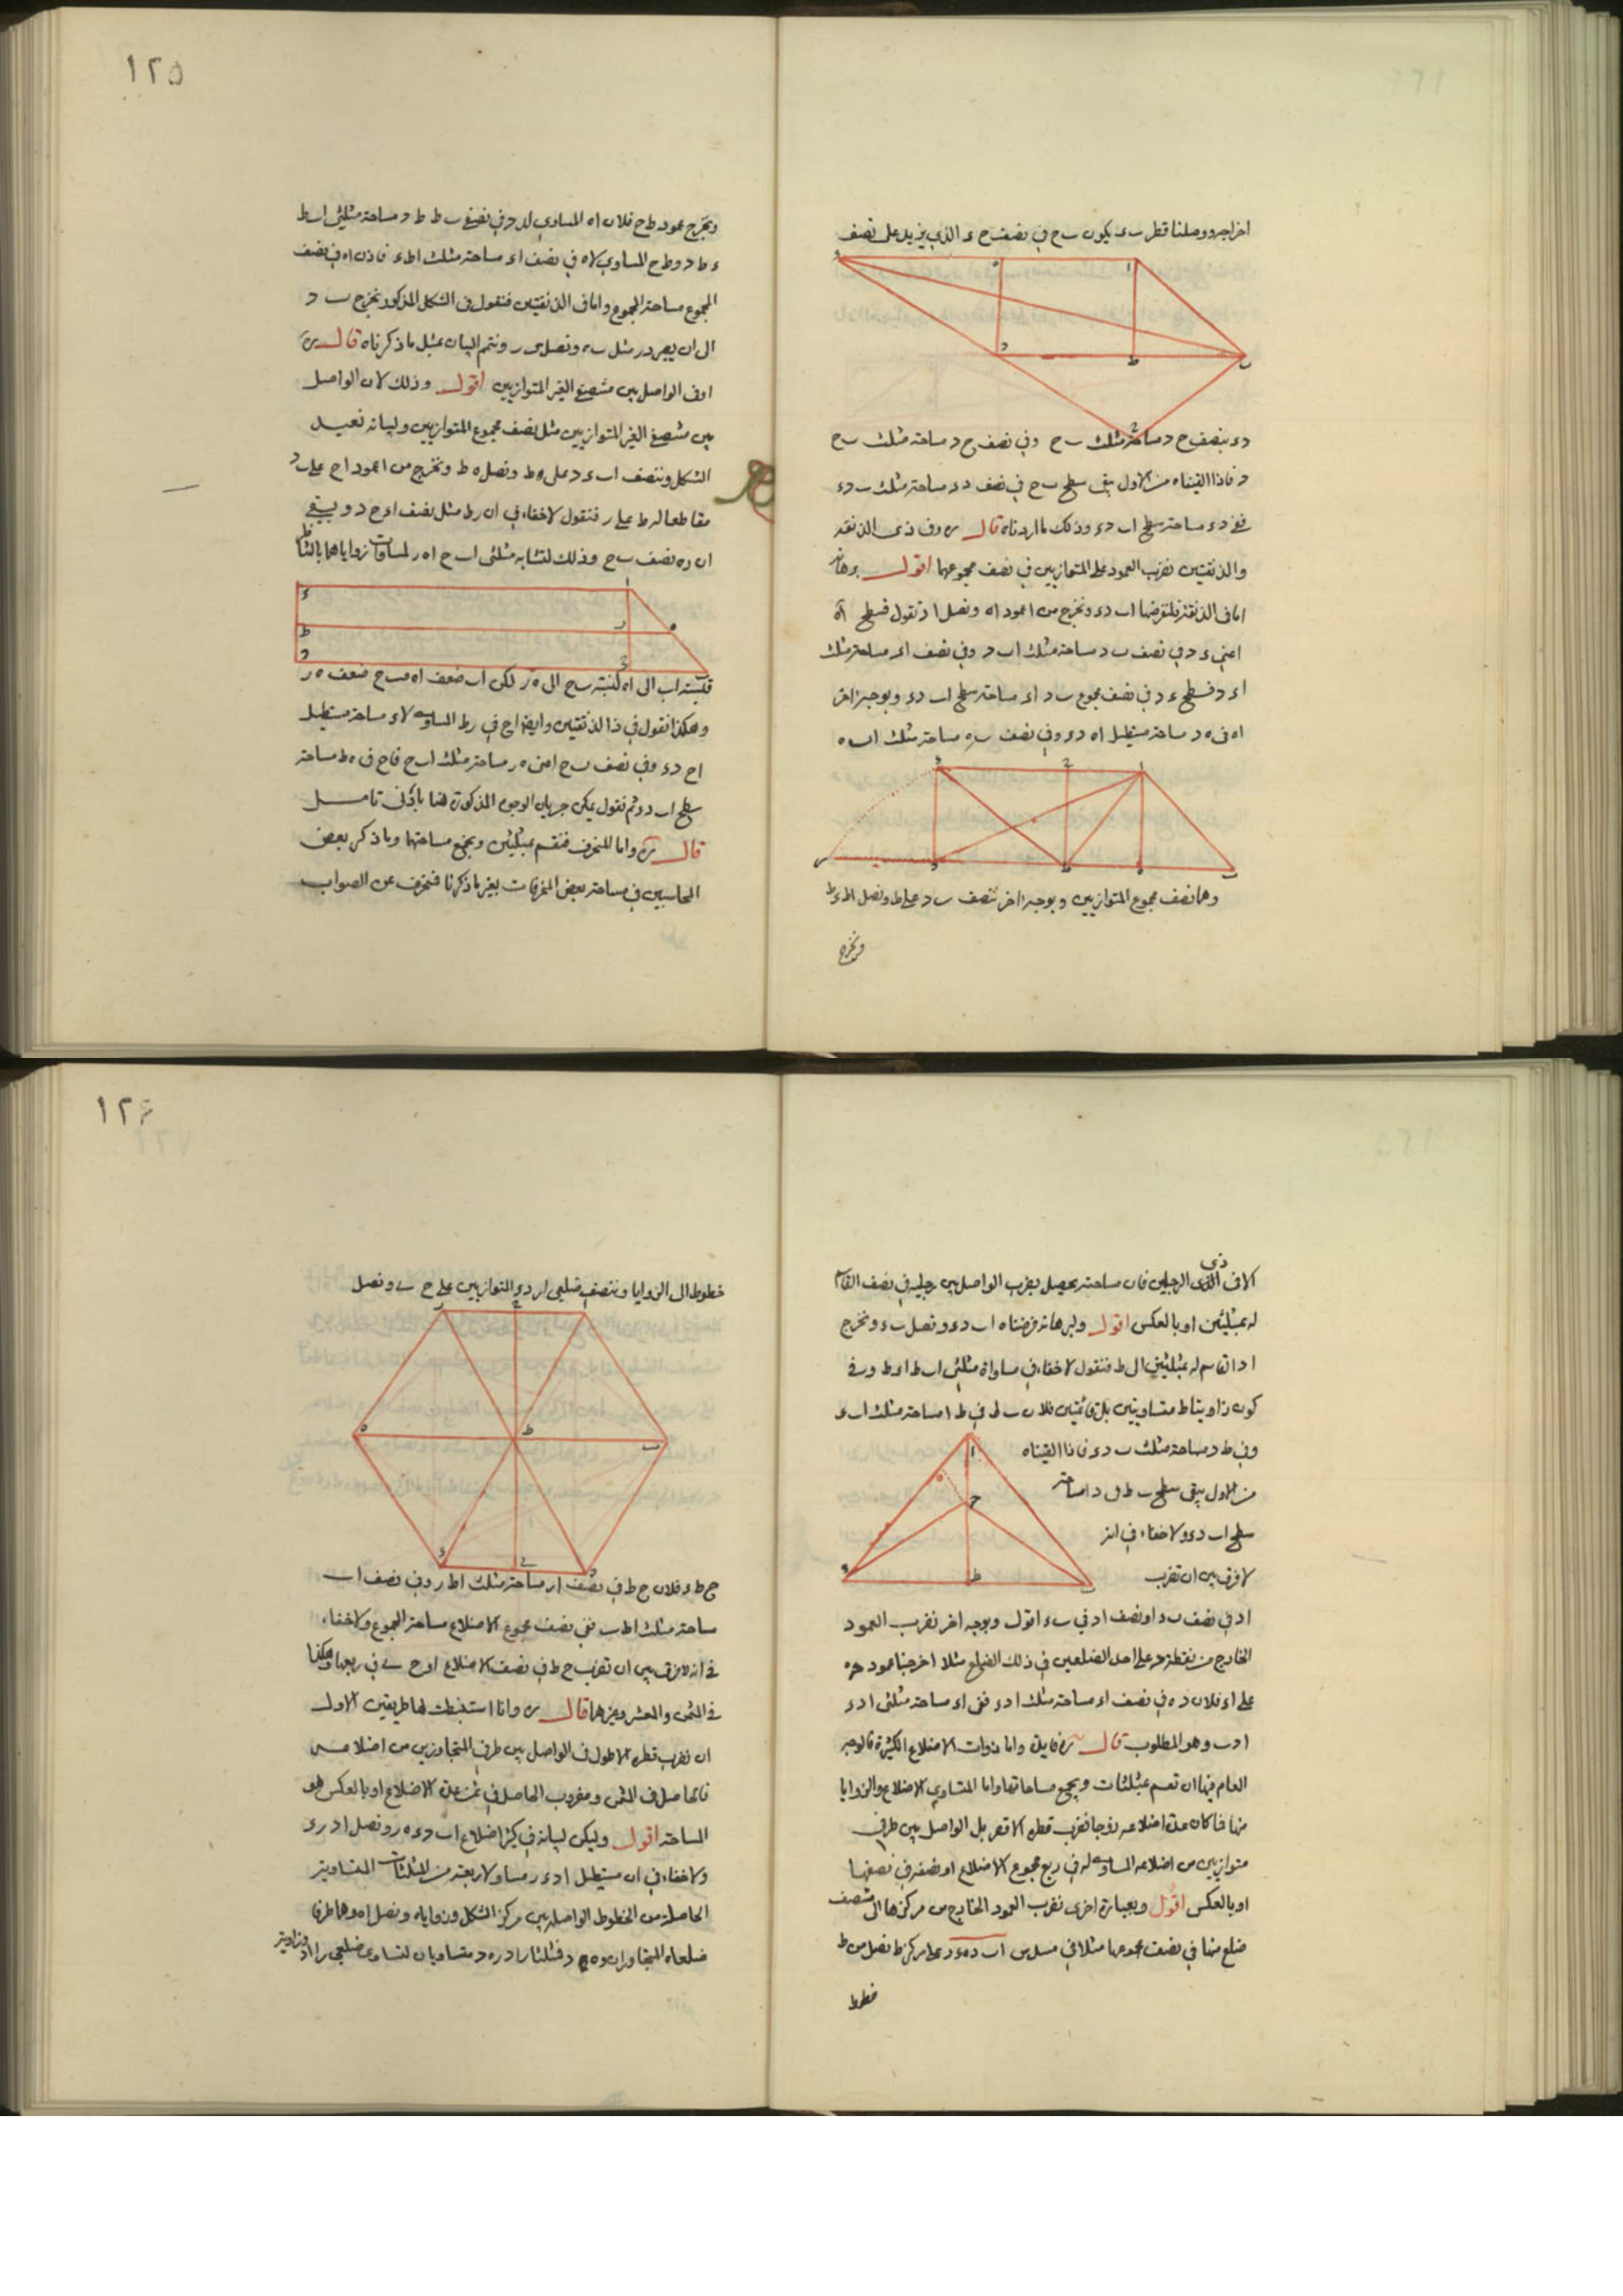 اخراجه ووصلنا قطر ب ء يكون ب ح في نصف ح ء الذي يزيد على نصف
د ء بنصف ح د مساحة مثلث ب ح وفي نصف ح د مساحة مثلث ب ح
د فاذا القيناه من الاول بقى سطح ب ح في نصف د ء مساحة مثلث ب د ء
د ء مساحة سطح اب د ء وذلك ما اردناه قال وفي ذي الذنقة
والذنقتين نضرب العمود على المتوازيين في نصف مجموعهما اقول برهانه
اما في الذنقة فلنفرضها اب د ء ونخرج من ا عمود اه ونصل ا د نقول فسطح اه
اعني ء د في نصف ب د مساحة مثلث اب د وفي نصف اء مساحة مثلث
اء د فسطح ء د في نصف مجموع ب د اء مساحة سطح اب د ء وبوجه اخر
اه في ه د مساحة مستطيل اه د ء وفي نصف ب ه مساحة مثلث اب ه
وهما نصف مجموع المتوازيين وبوجه اخر ننصف ب د على ط ونصل اط ء ط
ونخرج
١٢٥
ونخرج عمود ط ح فلان اه المساوي له في نصفي ب ط ط د مساحة مثلثي اب ط
ء ط د و ط ح المساوي لاه في نصف اء مساحة مثلث اط ء فاذن اه في نصف
المجموع مساحة المجموع واما في الذنقتين فنقول في الشكل المذكور نخرج ب د
الى ان يصير د ر مثل ب ه ونصل ء ر ونتمم البيان بمثل ما ذكرناه قال
او في الواصل بين منتصفي الغير المتوازيين اقول وذلك لان الواصل
بين منتصفي الغير المتوازيين مثل نصف مجموع المتوازيين ولبيانه نعيد
الشكل وننصف اب ء د على ه ط ونصل ه ط ونخرج من ا عمود ا ح على ب د
مقاطعا له ط على ر فنقول لاخفاء في ان ر ط مثل نصف اء ح د وبقي
ان ر ه نصف ب ح وذلك لتشابه مثلثي اب ح اه ر لمساوات زواياهما بالتناظر
فنسبة اب الى اه كنسبة ب ح الى ه ر لكن اب ضعف اه فب ح ضعف ه ر
وهكذا نقول في ذا الذنقتين وايضا ا ح في ر ط المساوي لاء مساحة مستطيل
ا ح د ء وفي نصف ب ح اعني ه ر مساحة مثلث اب ح فا ح في ه ط مساحة
سطح اب د ء ثم نقول يمكن جريان الوجوه المذكورة هنا بادنى تامل
قال واما المنحرف فنقسم بمثلثين ونجمع مساحتهما وما ذكر بعض
المحاسبين في مساحة بعض المنحرفات بغير ما ذكرنا فمنحرف عن الصواب
الا في ذى الرجلين فان مساحته يحصل بضرب الواصل بين رجليه في نصف القاسم
له بمثلثين او بالعكس اقول ولبرهانه فرضناه اب د ء ونصل ب ء ونخرج
ا د القاسم له بمثلثين الى ط فنقول لاخفاء في مساواة مثلثي اب ط اء ط وفي
كون زاويتا ط متساويتين بل قائمتين فلان ب ط في ط ا مساحة مثلث اب ء
وفي ط د مساحة مثلث ب د ء فاذا القيناه
من الاول بقى سطح ب ط في د ا مساحة
سطح اب د ء ولاخفاء في انه
لافرق بين ان نضرب
ا د في نصف ب ء او نصف ا د في ب ء اقول وبوجه اخر نضرب العمود
الخارج من نقطة د على احد الضلعين في ذلك الضلع مثلا اخرجنا عمود د ه
على اء فلان د ه في نصف اء مساحة مثلث ا د ء ففي اء مساحة مثلثي ا د ء
ا د ب وهو المطلوب قال واما ذوات الاضلاع الكثيرة فالوجه
العام فيها ان نقسم بمثلثات ونجمع مساحاتها واما المتساوي الاضلاع والزوايا
منها فما كان عدة اضلاعه زوجا نضرب قطره الاقصر بل الواصل بين طرفي
متوازيين من اضلاعه المساوي له في ربع مجموع الاضلاع او نصفه في نصفها
او بالعكس اقول وبعبارة اخرى نضرب العمود الخارج من مركزها الى منتصف
ضلع منها في نصف مجموعها مثلا في مسدس اب د ه ء ر على مركز ط نصل من ط
خطوط
١٢٦
خطوطا الى الزوايا وننصف ضلعي ار د ء المتوازيين على ح ى ونصل
ح ط ى فلان ح ط في نصف ار مساحة مثلث اط ر وفي نصف اب
مساحة مثلث اط ب ففي نصف مجموع الاضلاع مساحة المجموع ولاخفاء
في انه لافرق بين ان نضرب ح ط في نصف الاضلاع او ح ى في ربعها وهكذا
في المثمن والمعشر وغيرها قال وانا استنبطت لها طريقين الاول
ان نضرب قطره الاطول في الواصل بين طرفي المتجاورين من اضلاعه
فالحاصل في المثمن ومضروب الحاصل في ثمن عدة الاضلاع او بالعكس هو
المساحة اقول وليكن لبيانه في كثير اضلاع اب د ء ه ر ونصل ا د ر ء
ولاخفاء في ان مستطيل ا د ء ر مساو لاربعة من المثلثات المتساوية
الحاصلة من الخطوط الواصلة بين مركز الشكل وزواياه ونصل اه وهما طرفا
ضلعاه المتجاوران